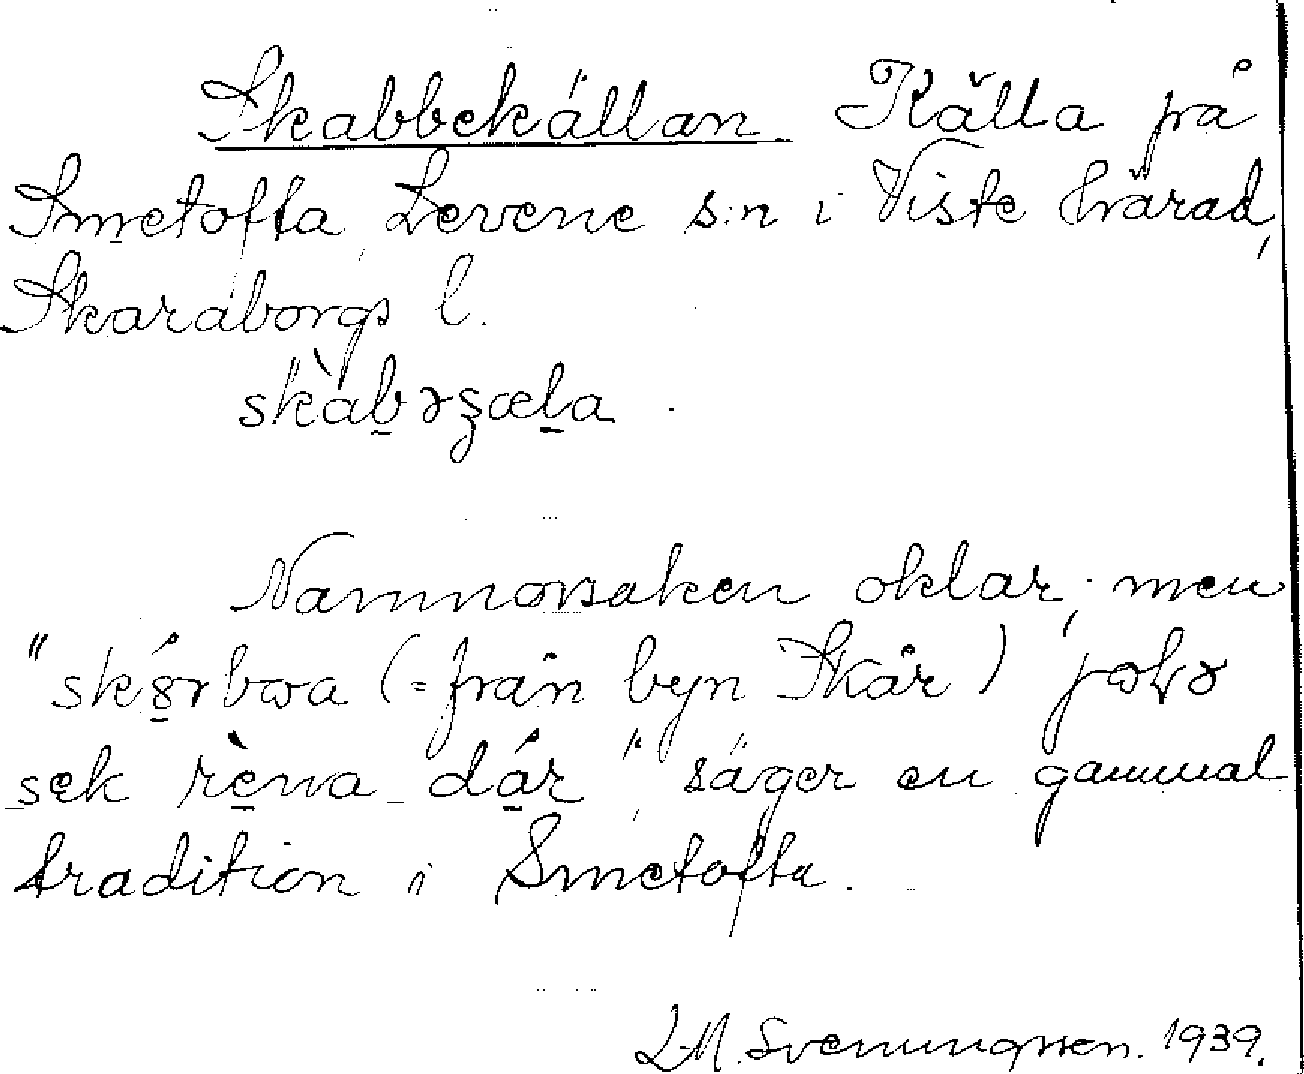 Skabbekällan. Källa på
Smetofta, Levene s:n i Viste härad,
Skaraborgs l.
skàbəʒæla.
Namnorsaken oklar, men
"skɵ́rbωa (= från byn Skår)
sek rèna dár", säger en gammal
tradition i Smetofta.
L.M. Svenungsson. 1939.